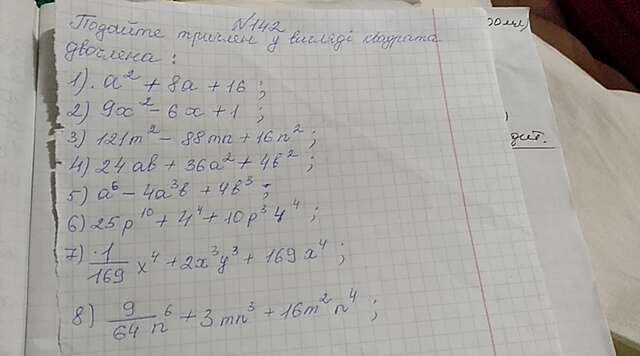 №142
Подайте тричлен у вигляді квадрата
двочлена:
1). a² + 8a + 16;
2) 9x² - 6x + 1;
3) 121m² - 88mn + 16n²;
4) 24ab + 36a² + 4b²;
5) a⁶ - 4a³b + 4b³;
6) 25p¹⁰ + 4⁴ + 10p³4⁴;
7) 1/169 x⁴ + 2x³y³ + 169x⁴;
8) 9/64 n⁶ + 3mn³ + 16m²n⁴;